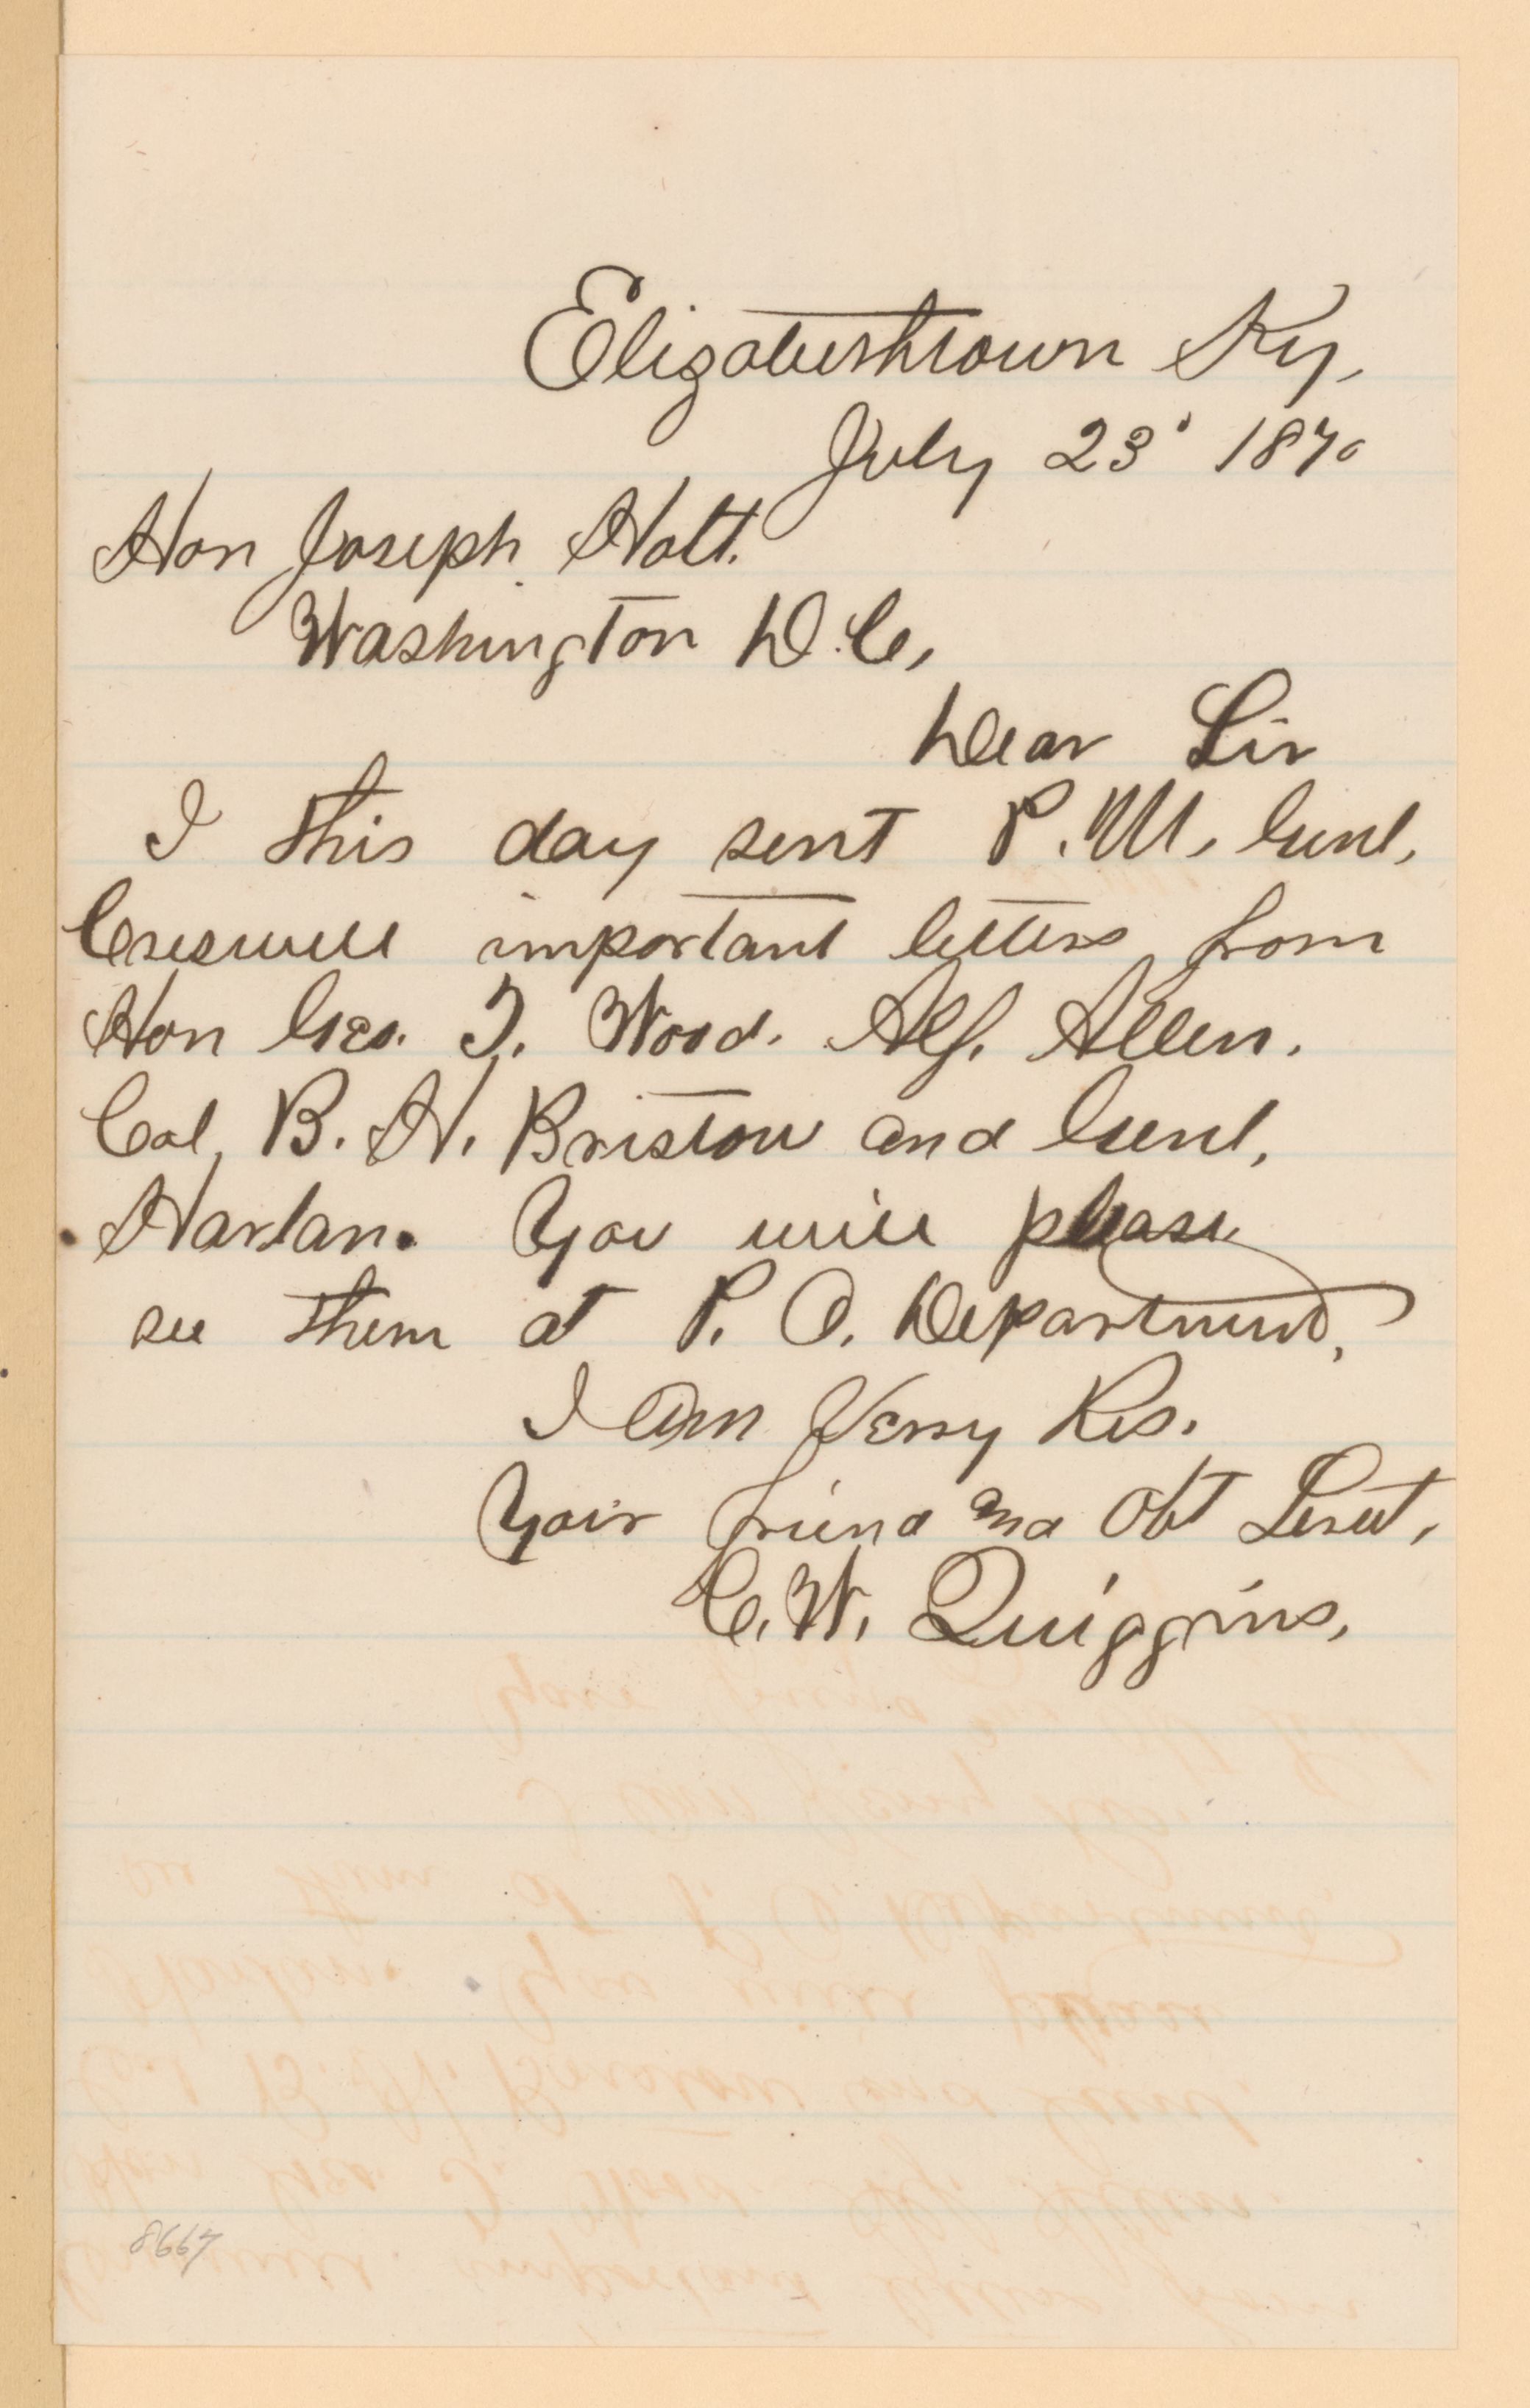 Elizabethtown Ky,
July 23' 1870
Hon Joseph Holt.
Washington D.C,
Dear Sir
I this day sent P.M, Genl,
Creswell important letters from
Hon Geo. T. Wood. Alf. Allen.
Col, B. H. Bristow and Genl,
Harlan. You will please
see them at P. O. Department,
I am Very Res.
Your friend and Obt Servt,
C.W. Quiggins,
8667